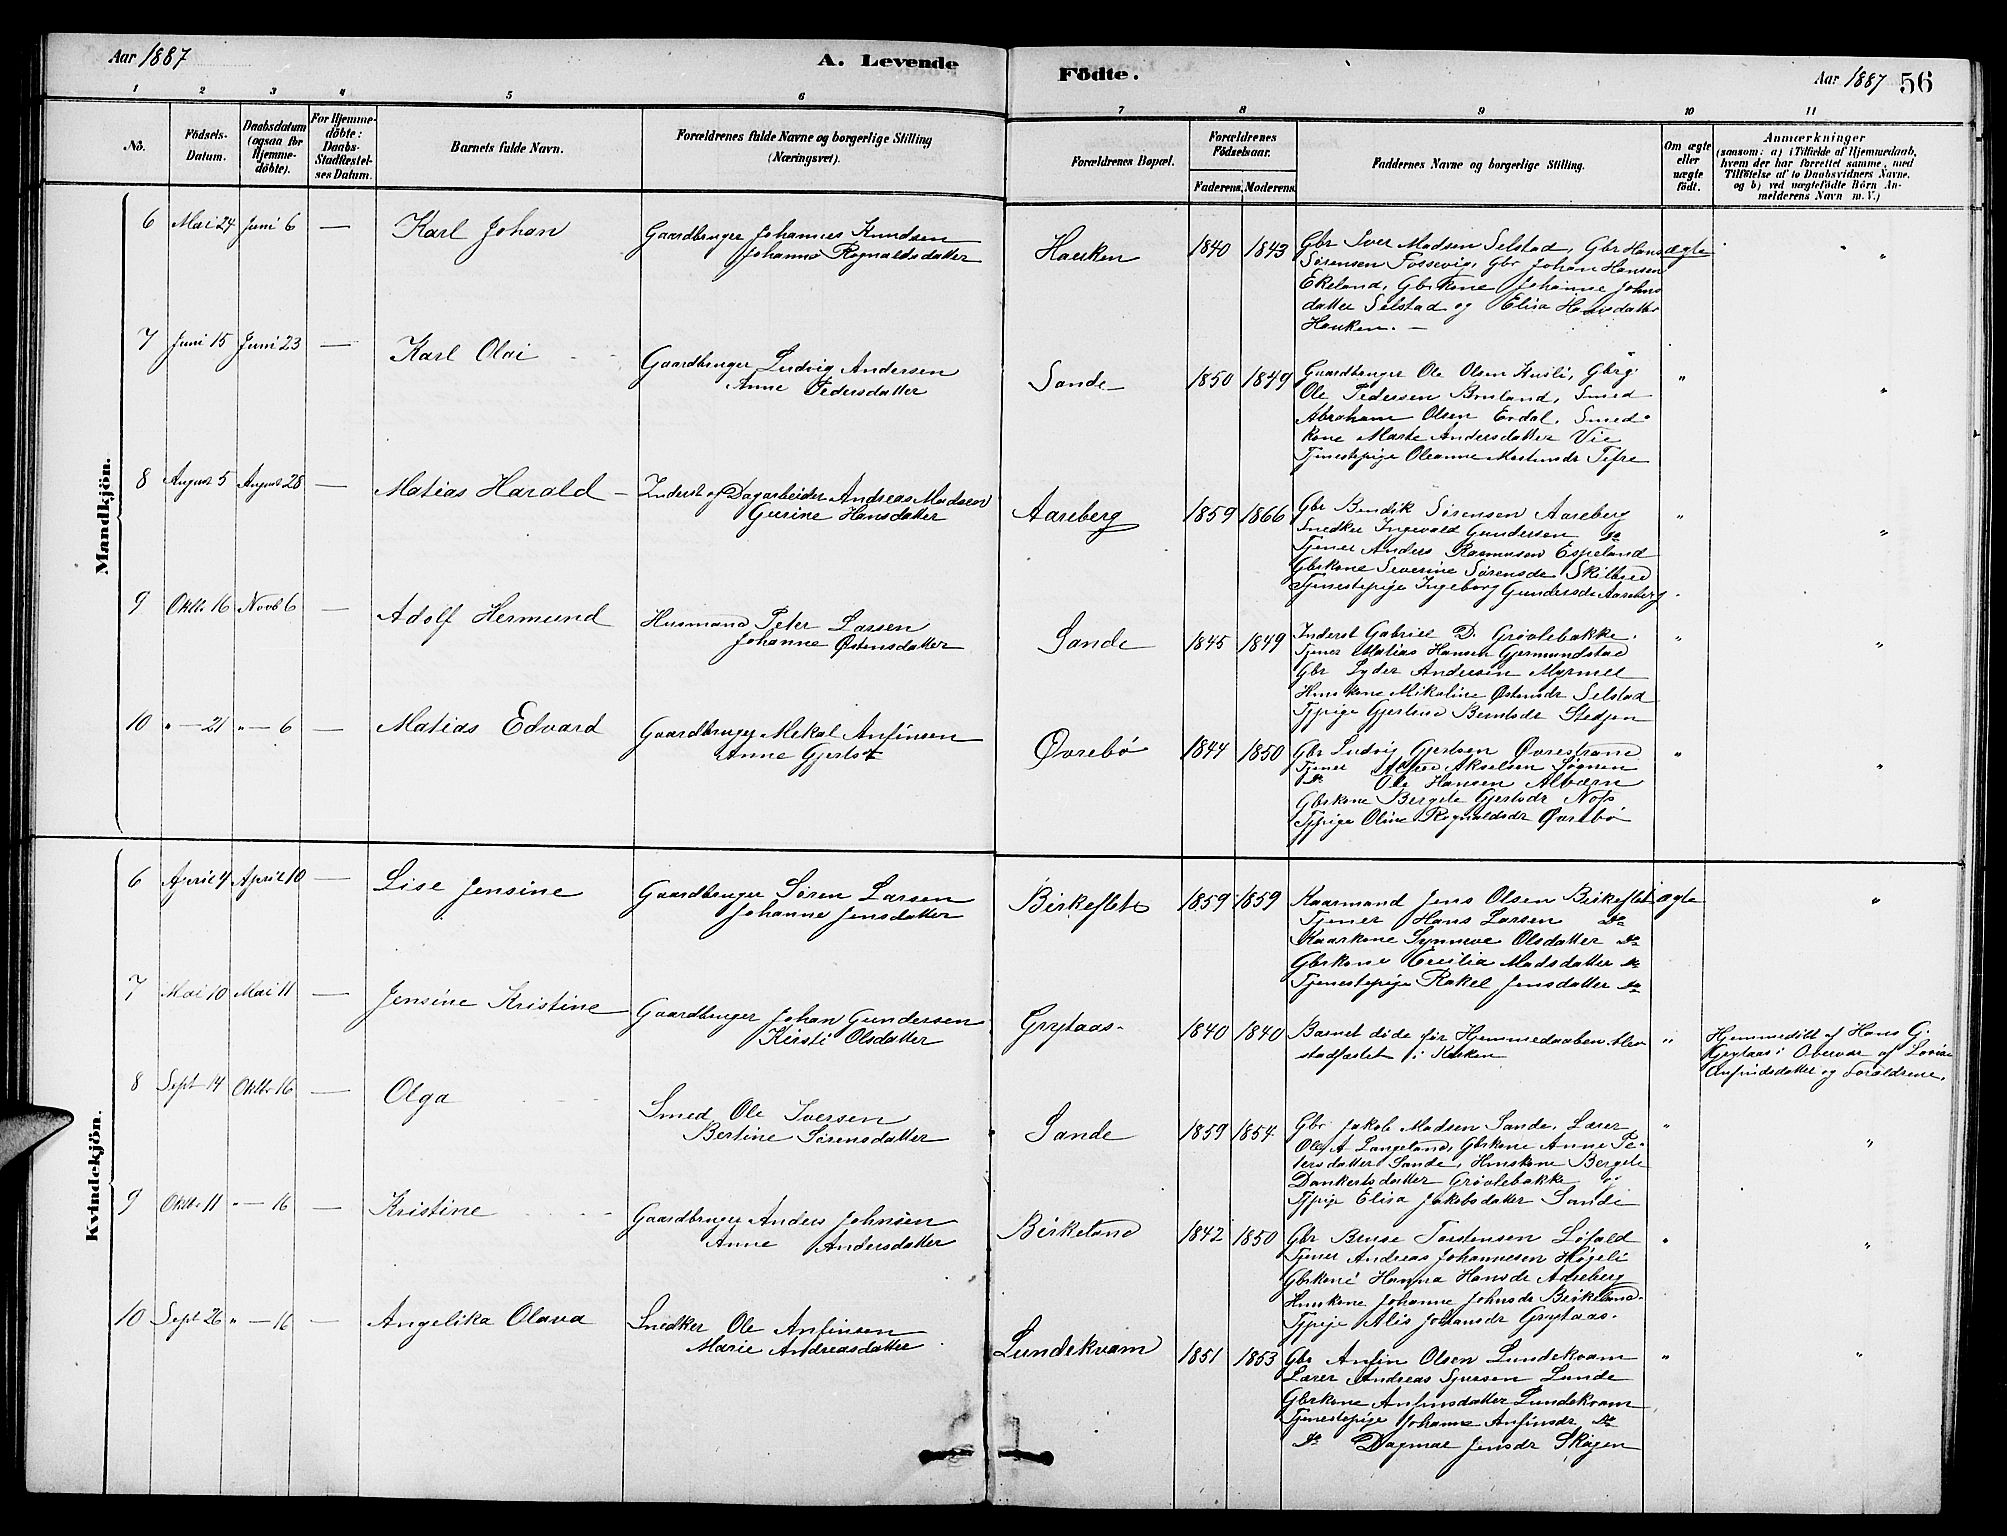 Aar 1887
A. Levende
Födte.
Aar 1887
56
1 2 3 4 5 6 7 8 9 10 11
No.
Födsels-Datum.
Daabsdatum (ogsaa for Hjemme-döbte).
For Hjemme-döbte: Daabs-Stadfæstel-ses Datum.
Barnets fulde Navn.
Forældrenes fulde Navne og borgerlige Stilling (Næringsvei).
Forældrenes Bopæl.
Forældrenes Födselsaar.
Faderens. Moderens.
Faddernes Navne og borgerlige Stilling.
Om ægte eller uægte födt.
Anmærkninger
(saasom: a) i Tilfælde af Hjemmedaab,
hvem der har forrettet samme, med
Tilföielse af to Daabsvidners Navne.
og b) ved uægtefödte Börn An-
melderens Navn m. V.)
Mandkjön.
6 Mai 24 Juni 6 — Karl Johan
Gaardbruger Johannes Knudsen
Johanne Rognaldsdatter
Hauken 1840 1843
Gbr Iver Madsen Selstad, Gbr Hans
Sørensen Fossevig, Gbr Johan Hansen
Ekeland, Gbrkone Johanne Johns
datter Selstad og Elisa Hansdatter
Hauken. —
ægte "
7 Juni 15 Juni 23 — Karl Olai
Gaardbruger Ludvig Andersen
Anne Pedersdatter
Sande 1850 1849
Gaardbruger Ole Olsen Husli, Gbrg
Ole Pedersen Bruland, Smed
Abraham Olsen Erdal, Smed-
kone Marte Andersdatter Vie
Tjenestepige Oleanne Martinsdr Tifre
" "
8 August 5 August 28 — Matias Harald —
Inderst og Dagarbeider Andreas Madsen
Gurine Hansdatter
Aareberg 1859 1866
Gbr Bendik Sørensen Aareberg
Snedker Ingevald Gundersen Do
Tjener Anders Rasmusen Espeland
Gbrkone Severine Sørensdr Skilbred
Tjenestepige Ingeborg Gundersdr Aareberg.
" "
9 Oktbr 16 Novb 6 — Adolf Hermund
Husmand Peter Larsen
Johanne Østensdatter
Sande 1845 1849
Inderst Gabriel D. Grøvlebakke.
Tjener Matias Hansen Gjermundstad
Gbr Lyder Andersen Myrmel
Hmskone Mikaline Østensdr Selstad
Tjpige Gjertine Berntsdr Stedjen
" "
10 " — 21 " — 6 — Matias Edvard
Gaardbruger Mikal Anfinsen
Anne Gjertsd
Øvrebø 1844 1850
Gbr Ludvig Gjertsen Øvrestrand
Tjener Akselsen Sognen
Do Ole Hansen Alværn
Gbrkone Bergete Gjertsdr Nofs
Tjpige Oline Rognaldsdr Øvrebø
" "
Kvindekjön.
6 April 4 April 10 — Lise Jensine
Gaardbruger Søren Larsen
Johanne Jensdatter
Birkeflet 1859 1859
Kaarmand Jens Olsen Birkeflet
Tjener Hans Larsen Do
Kaarkone Synneve Olsdatter Do
Gbrkone Cecilia Madsdatter Do
Tjenestepige Rakel Jensdatter Do
ægte "
7 Mai 10 Mai 11 — Jensine Kristine
Gaardbruger Johan Gundersen
Kirsti Olsdatter
Grytaas. 1840 1840
Barnet døde før Hjemmedaaben blev
stadfæstet i Kirken
"
Hjemmedöbt af Hans G.
Grytaas i Overvær af Lovise
Anfindsdatter og Forældrene.
8 Sept 14 Oktbr 16 — Olga
Smed Ole Iversen
Bertine Sørensdatter
Sande 1859 1854
Gbr Jakob Madsen Sande, Lærer
Ole A Langeland, Gbrkone Anne Pe-
tersdatter Sande, Hmskone Bergete
Dankertsdatter Grøvlebakke og
Tjpige Elisa Jakobsdatter Sande
" "
9 Oktb 11 " — 16 — Kristine
Gaardbruger Anders Johnsen
Anne Andersdatter
Birkeland 1842 1850
Gbr Bruse Torstensen Løfald
Tjener Andreas Johannesen Høgeli
Gbrkone Hanna Hansdr Aareberg
Hmskone Johanne Johnsdr Birkeland
Tjpige Alis Johansdr Grytaas.
" "
10 Sept 26 " — 16 — Angelika Olava
Snedker Ole Anfinsen
Marie Andreasdatter
Lundekvam 1851 1853
Gbr Anfin Olsen Lundekvam
Lærer Andreas Sjursen Lunde
Gbrkone Anfinsdatter Lundekvam
Tjenestepige Johanne Anfinsdr Do
Do Dagmar Jensdr Skagen
" "